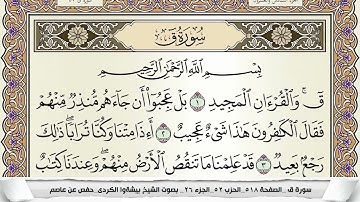 سُورَةُ قٓ
بِسْمِ ٱللَّهِ ٱلرَّحْمَٰنِ ٱلرَّحِيمِ
قٓ ۚ وَٱلْقُرْءَانِ ٱلْمَجِيدِ ١ بَلْ عَجِبُوٓا۟ أَن جَآءَهُم مُّنذِرٌ مِّنْهُمْ
فَقَالَ ٱلْكَٰفِرُونَ هَٰذَا شَىْءٌ عَجِيبٌ ٢ أَءِذَا مِتْنَا وَكُنَّا تُرَابًا ۖ ذَٰلِكَ
رَجْعٌۢ بَعِيدٌ ٣ قَدْ عَلِمْنَا مَا تَنقُصُ ٱلْأَرْضُ مِنْهُمْ ۖ وَعِندَنَا كِتَٰبٌ
سورة ق _ الصفحة ٥١٨ _ الحزب ٥٢ _ الجزء ٢٦ _ بصوت الشيخ بيشەوا الكردي _ حفص عن عاصم